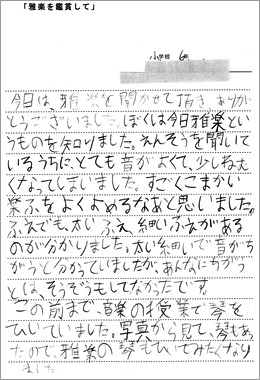 「雅楽を鑑賞して」
小学校 6年
今日は、雅楽を聞かせて頂き、ありが
とうございました。ぼくは今日雅楽とい
うものを知りました。えんそうを聞いて
いるうちに、とても音がよくて、少しねむ
くなってしまいました。すごくこまかい
楽ふをよくよめるなあと思いました。
ふえでも、太いふえ、細いふえがある
のが分かりました。太い細いで音がち
がうと分かっていましたが、あんなにちがう
とは、そうぞうもしてなかったです。
この前まで、音楽の授業で琴を
ひいていました。写真から見て、琴もあっ
たので、雅楽の琴もひいてみたくなり
ました